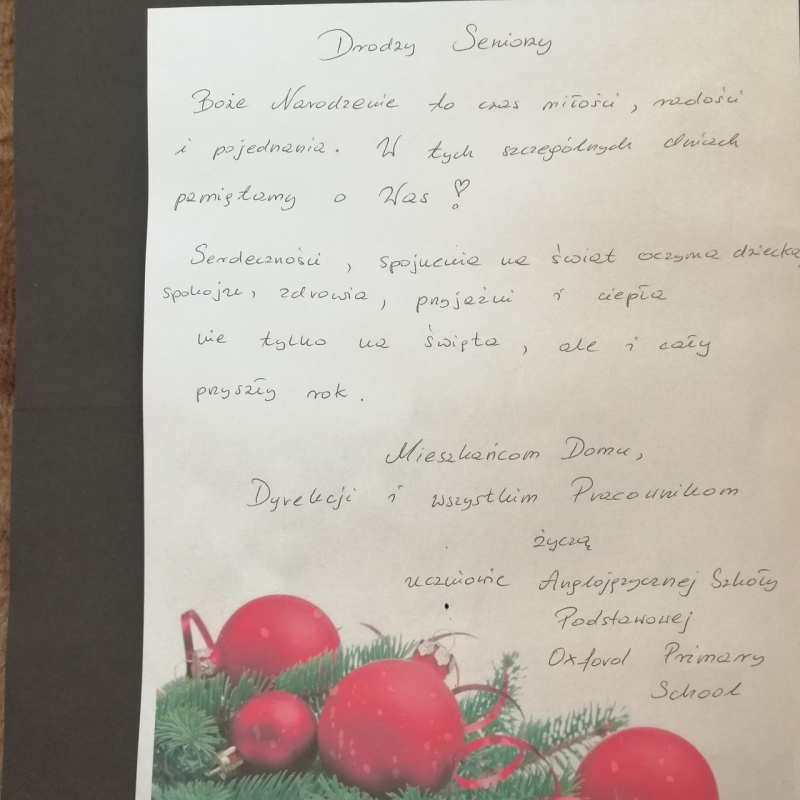 Drodzy Seniorzy
Boże Narodzenie to czas miłości, radości
i pojednania. W tych szczególnych dniach
pamiętamy o Was!
Serdeczności, spojrzenia na świat oczyma dziecka,
spokoju, zdrowia, przyjaźni i ciepła
nie tylko na święta, ale i cały
przyszły rok.
Mieszkańcom Domu,
Dyrekcji i wszystkim Pracownikom
życzą
uczniowie Anglojęzycznej Szkoły
Podstawowej
Oxford Primary
School